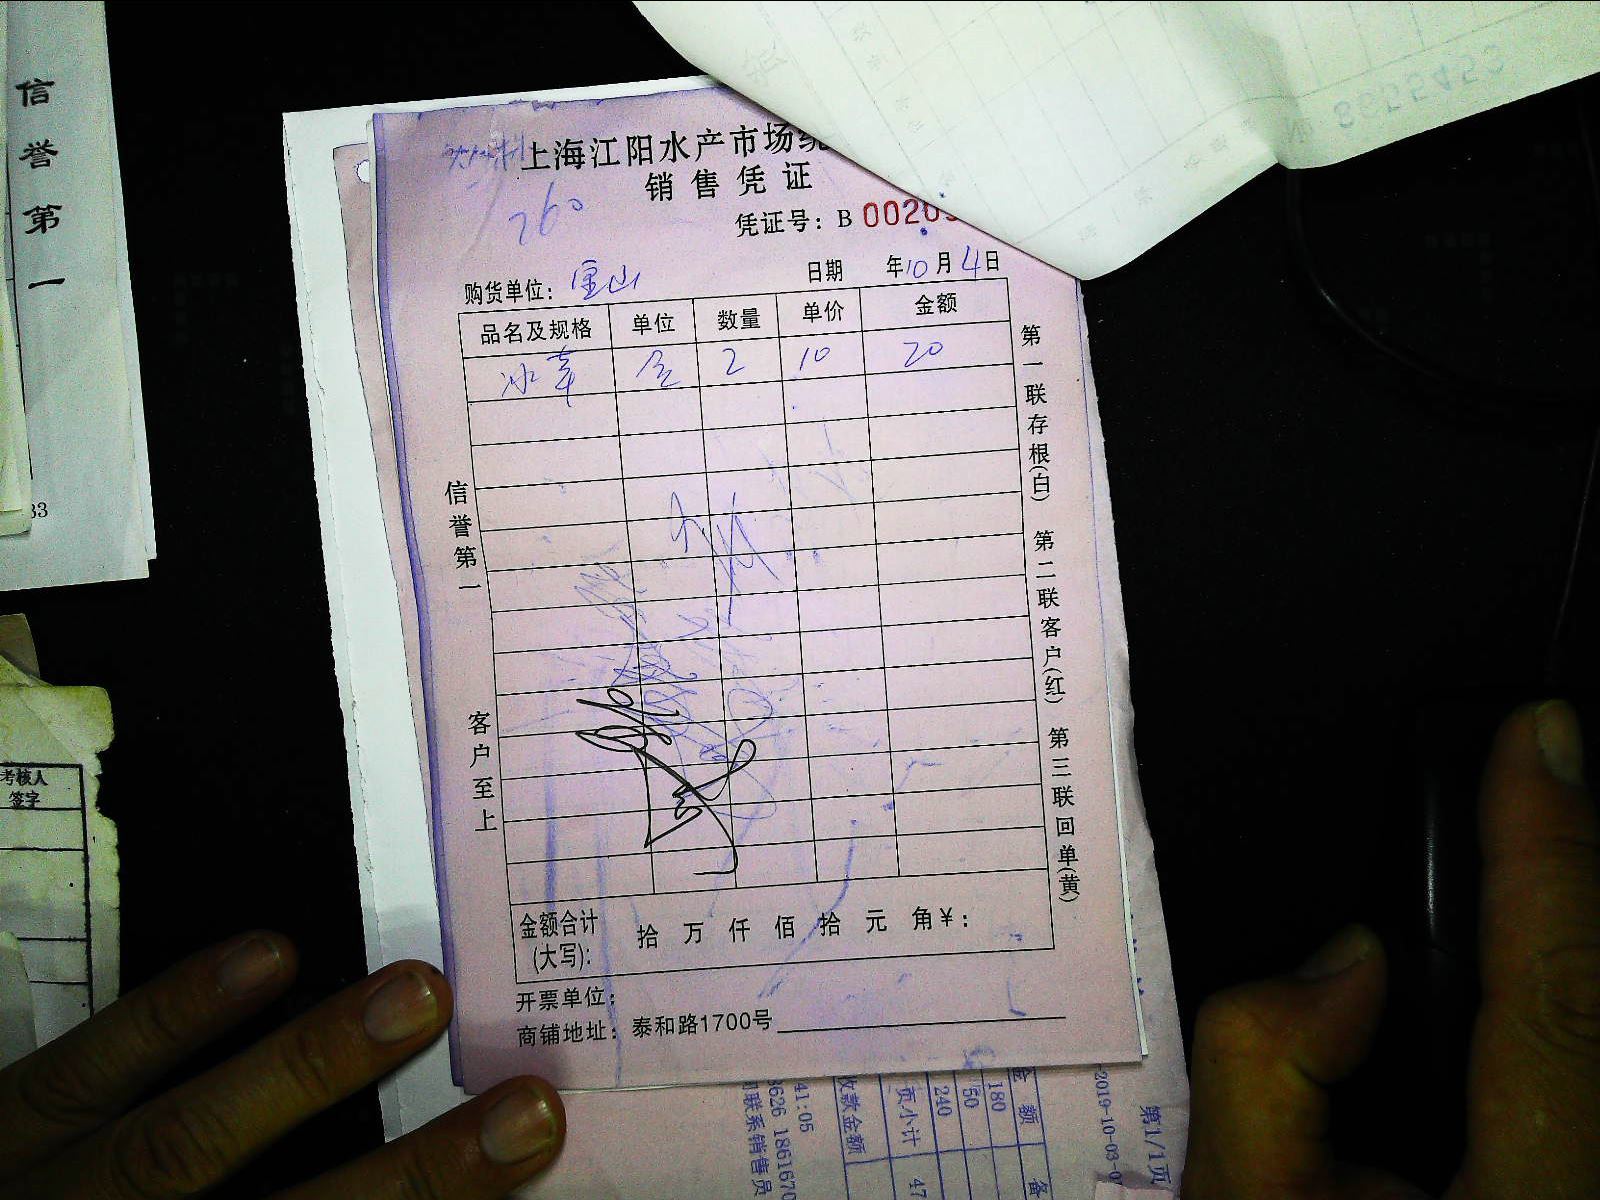 上海江阳水产市场
销售凭证
凭证号：B 0020
260
购货单位：宝山
日期 年10月4日
品名及规格 单位 数量 单价 金额
冰 2 10 20
信誉第一
客户至上
第一联存根(白)
第二联客户(红)
第三联回单(黄)
金额合计
(大写)：
拾 万 仟 佰 拾 元 角 ¥：
开票单位：
商铺地址：泰和路1700号
信誉第一
33
考核人
签字
8655452
金额 备
180
50
240
页小计 47
收款金额
41:05
3626 1861670
联系销售员
2019-10-03-0
第1/1页